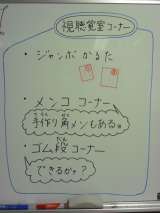 視聴覚室コーナー
・ジャンボかるた
・メンコ コーナー
手作り角メンもある。
・ゴム段コーナー
できるかァ?